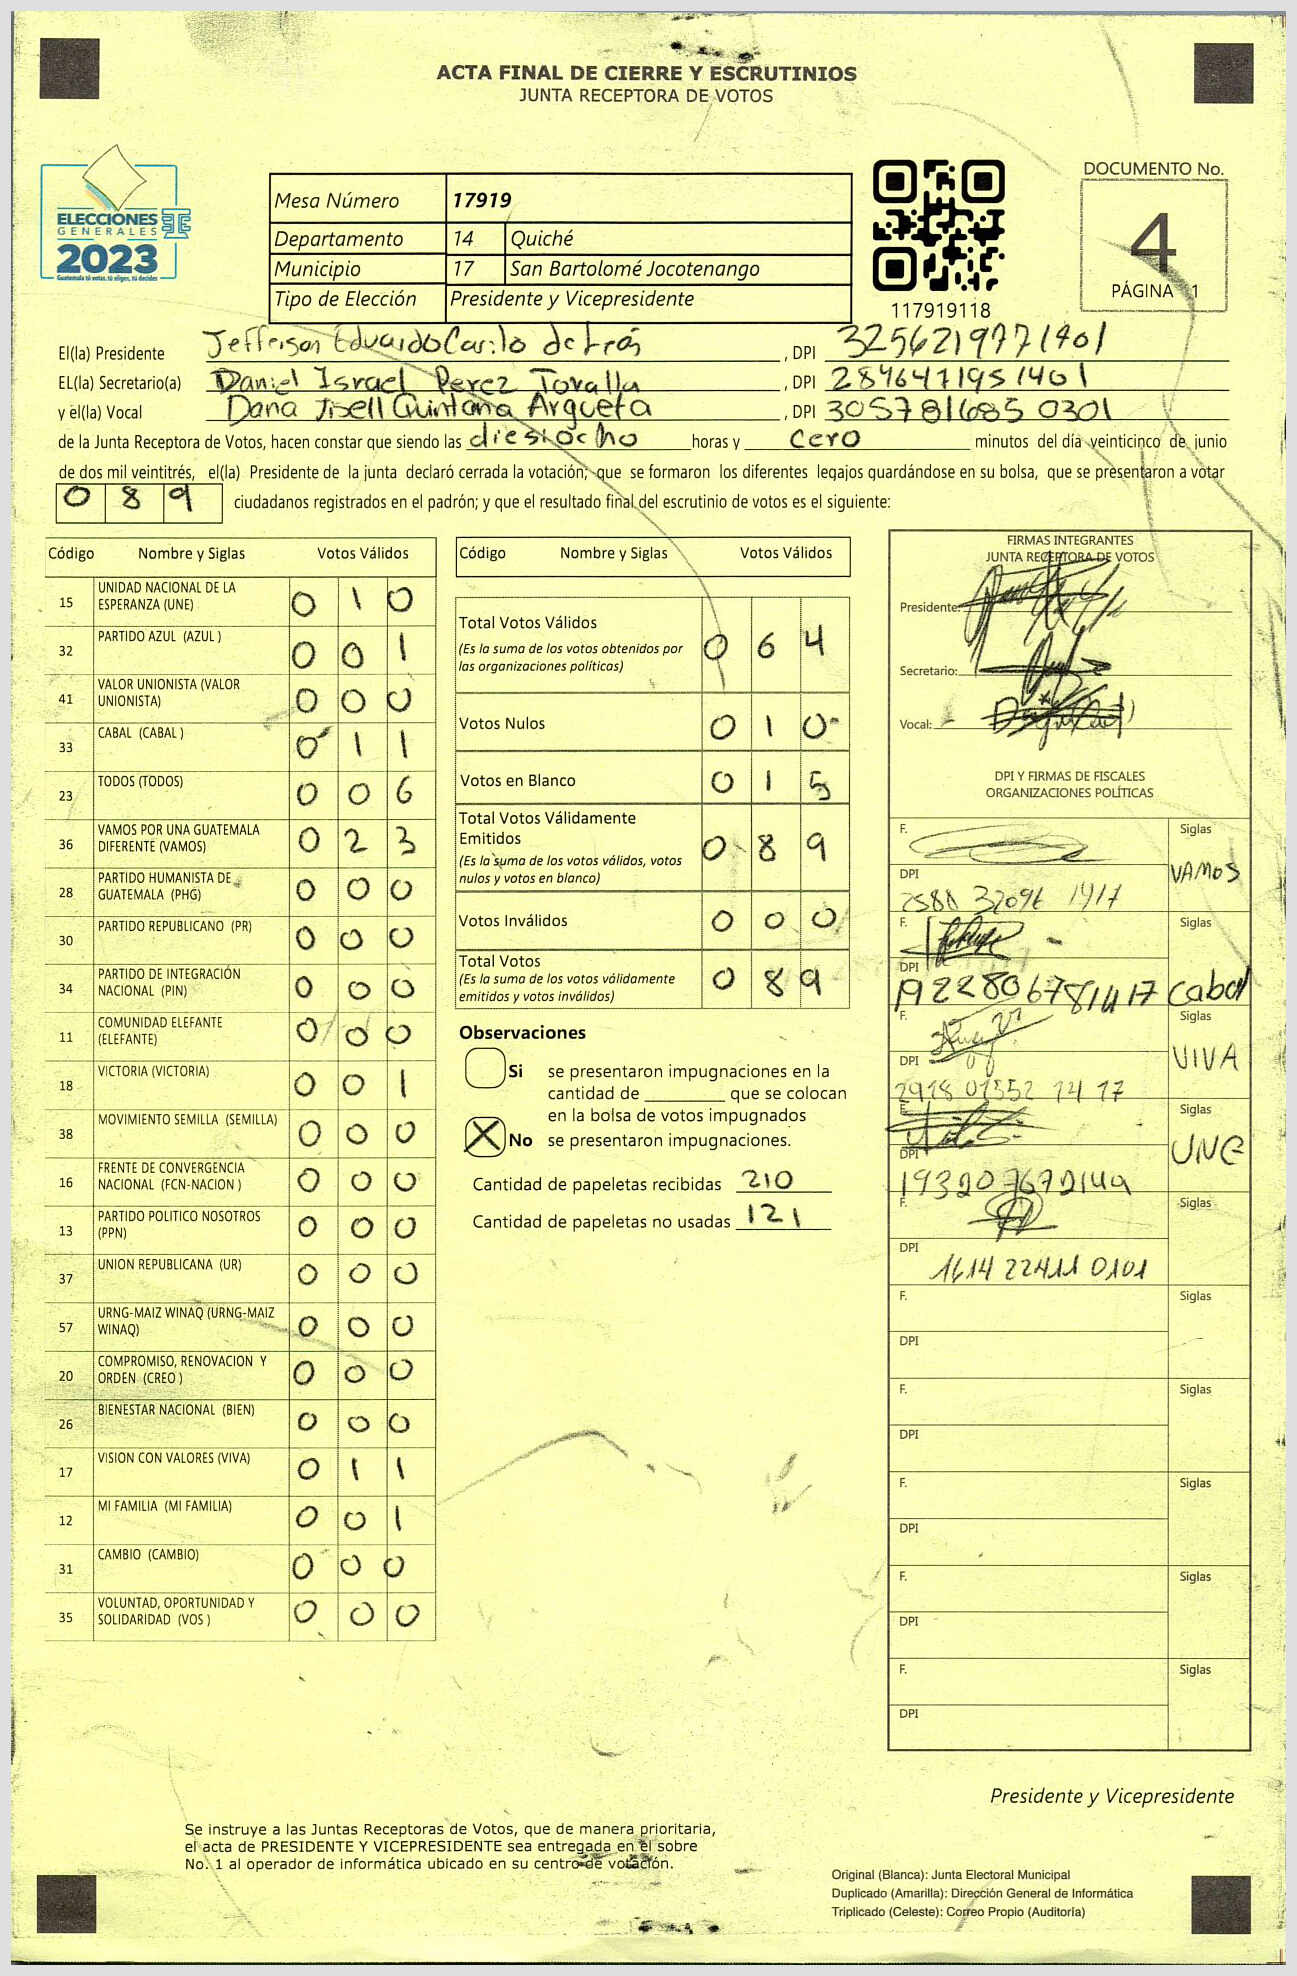 ACTA FINAL DE CIERRE Y ESCRUTINIOS
JUNTA RECEPTORA DE VOTOS
ELECCIONES
GENERALES
2023
Guatemala tú votas, tú eliges, tú decides
Mesa Número 17919
Departamento 14 Quiché
Municipio 17 San Bartolomé Jocotenango
Tipo de Elección Presidente y Vicepresidente
117919118
DOCUMENTO No.
4
PÁGINA 1
El(la) Presidente Jefferson Eduardo Carilo de León , DPI 3256219771401
EL(la) Secretario(a) Daniel Israel Perez Tovalla , DPI 2846471951401
y el(la) Vocal Dana Jisell Quintana Argueta , DPI 305781685 0301
de la Junta Receptora de Votos, hacen constar que siendo las diesiocho horas y cero minutos del día veinticinco de junio
de dos mil veintitrés, el(la) Presidente de la junta declaró cerrada la votación; que se formaron los diferentes legajos guardándose en su bolsa, que se presentaron a votar
0 8 9 ciudadanos registrados en el padrón; y que el resultado final del escrutinio de votos es el siguiente:
Código Nombre y Siglas Votos Válidos
15 UNIDAD NACIONAL DE LA ESPERANZA (UNE) 0 1 0
32 PARTIDO AZUL (AZUL ) 0 0 1
41 VALOR UNIONISTA (VALOR UNIONISTA) 0 0 0
33 CABAL (CABAL ) 0 1 1
23 TODOS (TODOS) 0 0 6
36 VAMOS POR UNA GUATEMALA DIFERENTE (VAMOS) 0 2 3
28 PARTIDO HUMANISTA DE GUATEMALA (PHG) 0 0 0
30 PARTIDO REPUBLICANO (PR) 0 0 0
34 PARTIDO DE INTEGRACIÓN NACIONAL (PIN) 0 0 0
11 COMUNIDAD ELEFANTE (ELEFANTE) 0 0 0
18 VICTORIA (VICTORIA) 0 0 1
38 MOVIMIENTO SEMILLA (SEMILLA) 0 0 0
16 FRENTE DE CONVERGENCIA NACIONAL (FCN-NACION ) 0 0 0
13 PARTIDO POLITICO NOSOTROS (PPN) 0 0 0
37 UNION REPUBLICANA (UR) 0 0 0
57 URNG-MAIZ WINAQ (URNG-MAIZ WINAQ) 0 0 0
20 COMPROMISO, RENOVACION Y ORDEN (CREO ) 0 0 0
26 BIENESTAR NACIONAL (BIEN) 0 0 0
17 VISION CON VALORES (VIVA) 0 1 1
12 MI FAMILIA (MI FAMILIA) 0 0 1
31 CAMBIO (CAMBIO) 0 0 0
35 VOLUNTAD, OPORTUNIDAD Y SOLIDARIDAD (VOS ) 0 0 0
Código Nombre y Siglas Votos Válidos
Total Votos Válidos 0 6 4
(Es la suma de los votos obtenidos por
las organizaciones políticas)
Votos Nulos 0 1 0
Votos en Blanco 0 1 5
Total Votos Válidamente
Emitidos 0 8 9
(Es la suma de los votos válidos, votos
nulos y votos en blanco)
Votos Inválidos 0 0 0
Total Votos 0 8 9
(Es la suma de los votos válidamente
emitidos y votos inválidos)
Observaciones
Si se presentaron impugnaciones en la
cantidad de ________ que se colocan
en la bolsa de votos impugnados
X No se presentaron impugnaciones.
Cantidad de papeletas recibidas 210
Cantidad de papeletas no usadas 121
FIRMAS INTEGRANTES
JUNTA RECEPTORA DE VOTOS
Presidente:
Secretario:
Vocal:
DPI Y FIRMAS DE FISCALES
ORGANIZACIONES POLÍTICAS
F. Siglas
DPI VAMOS
F. Siglas
DPI
1922806781417 cabal
F. Siglas
DPI VIVA
2918 01552 14 17
F. Siglas
DPI UNE
F. Siglas
DPI
1614 22411 0101
F. Siglas
DPI
F. Siglas
DPI
F. Siglas
DPI
F. Siglas
DPI
F. Siglas
DPI
Presidente y Vicepresidente
Se instruye a las Juntas Receptoras de Votos, que de manera prioritaria,
el acta de PRESIDENTE Y VICEPRESIDENTE sea entregada en el sobre
No. 1 al operador de informática ubicado en su centro de votación.
Original (Blanca): Junta Electoral Municipal
Duplicado (Amarilla): Dirección General de Informática
Triplicado (Celeste): Correo Propio (Auditoría)